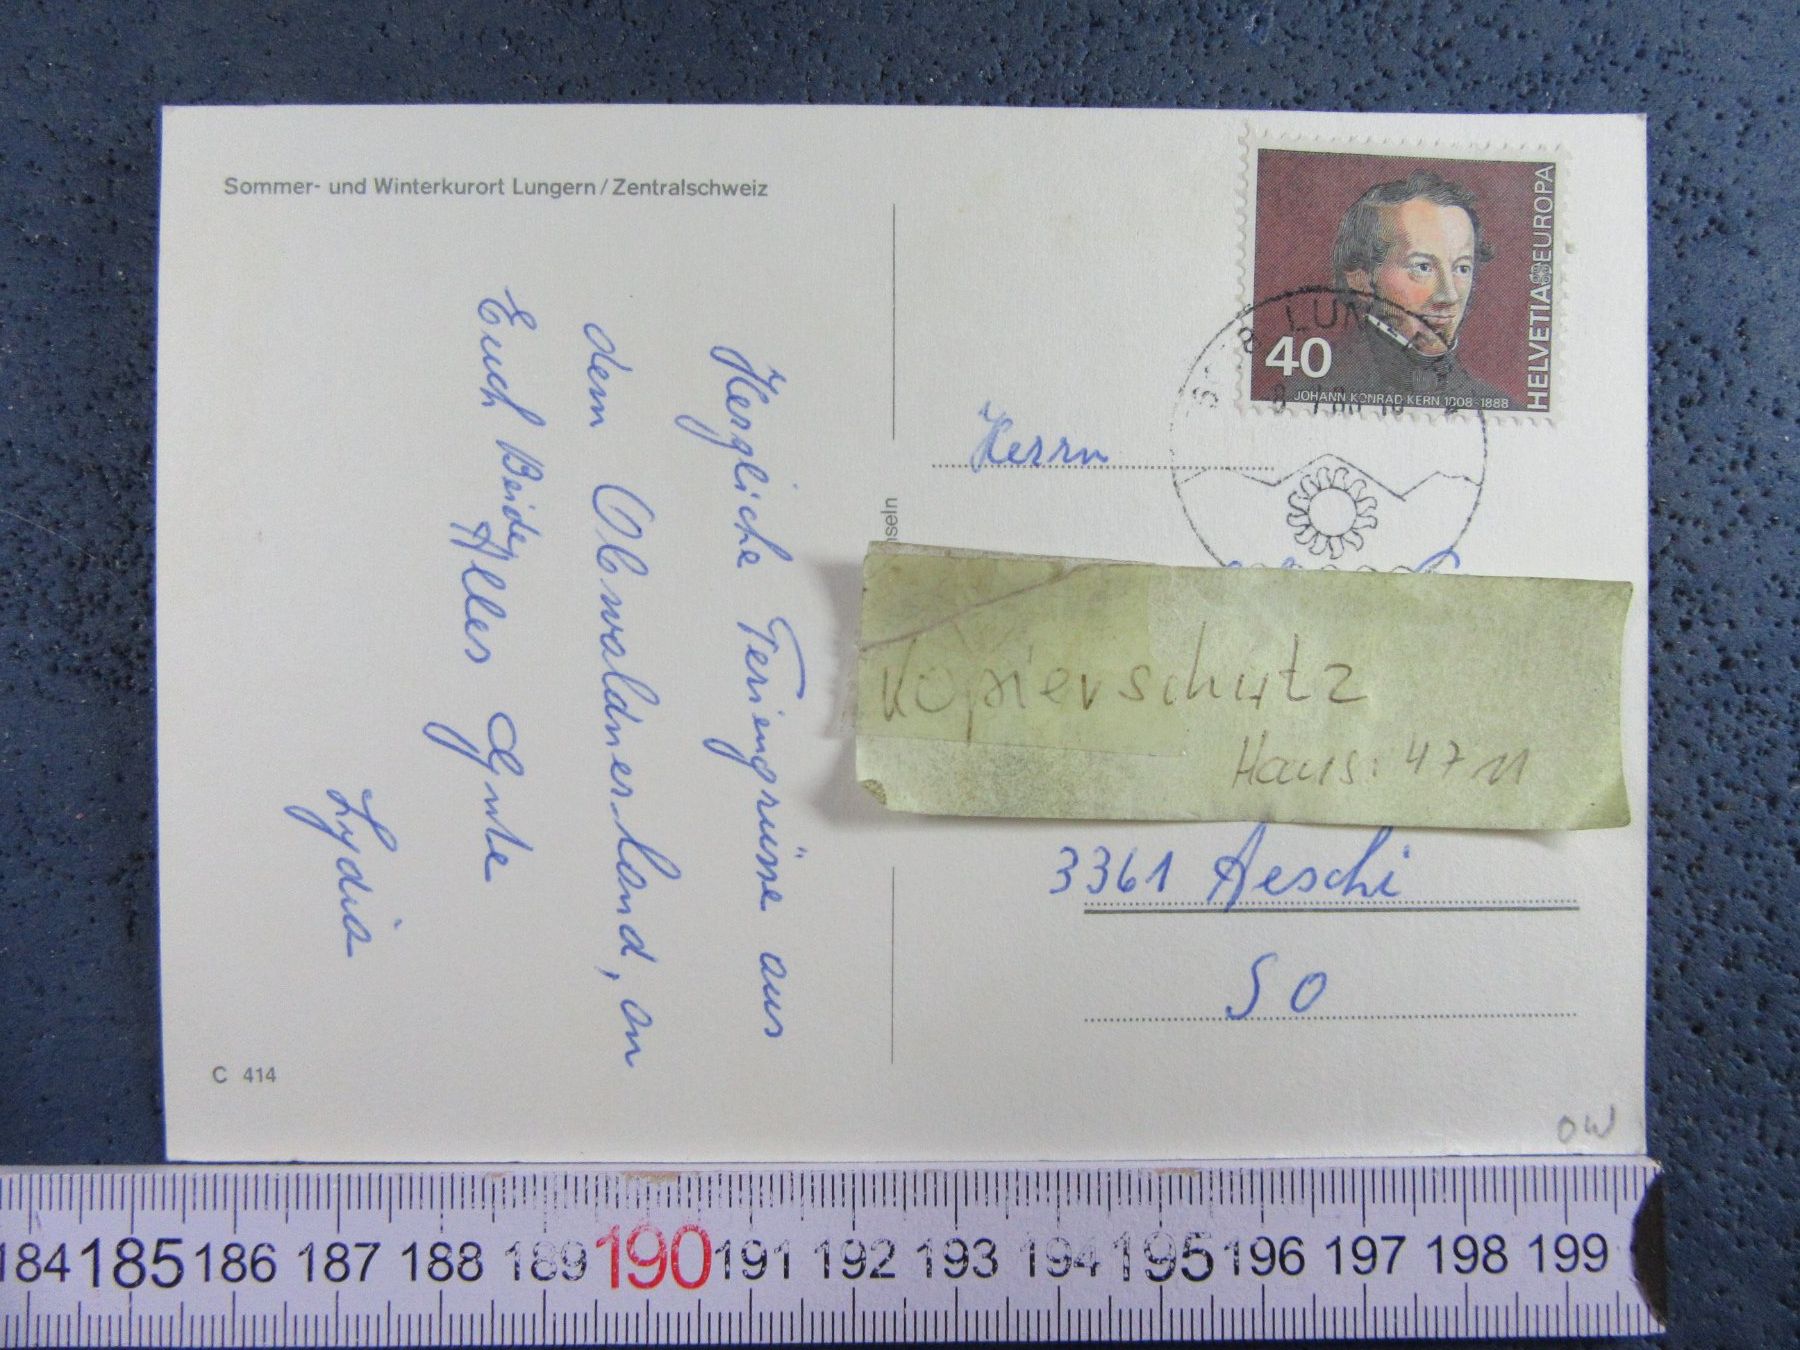 Sommer- und Winterkurort Lungern / Zentralschweiz
Herzliche Feriengrüsse aus
dem Obwaldnerland, an
Euch Beide,
Alles Gute
Lydia
C 414
nseln
HELVETIA EUROPA
40
JOHANN KONRAD KERN 1808-1888
Herrn
Kopierschutz
Haus: 4711
3361 Aeschi
SO
OW
184 185 186 187 188 189 190 191 192 193 194 195 196 197 198 199